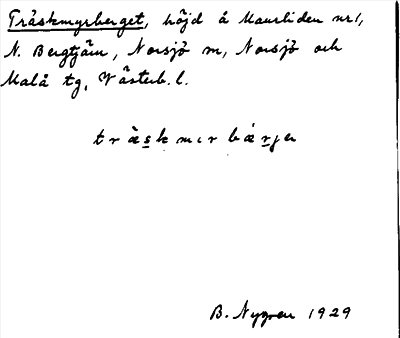 Träskmyrberget, höjd å Maurliden nr 1,
N. Bergtjärn, Norsjö sn, Norsjö och
Malå tg, Västerb. l.
B. Nygren 1929